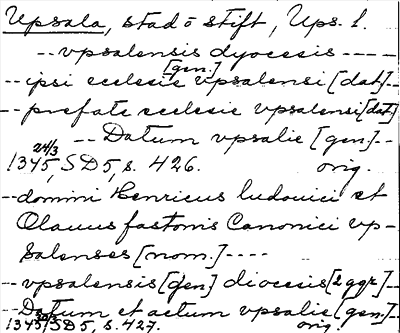 Upsala, stad o stift, Ups. l.
-- vpsalensis dyocesis ----
[gen.]
-- ipsi ecclesie vpsalensi [dat]--
-- prefate ecclesie vpsalensi [dat]
-- Datum vpsalie [gen]--
24/3
1345, SD5, s. 426. orig.
-- domini Henricus ludouici et
Olauus fastonis Canonici vp-
salenses [nom.]----
-- vpsalensis [gen] diocesis [2 ggr]--
-- Datum et actum vpsalie [gen]--
1345, SD5, s. 427. orig.